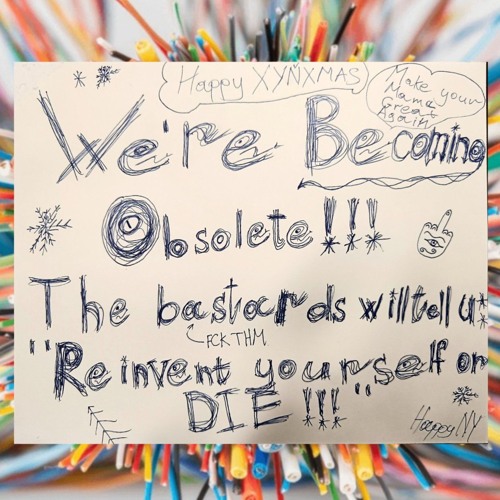 Happy XYÑXMAS
Make your
Name
Great
Again
We're Becoming
Obsolete!!!
The bastards will tell us
FCK THM
"Reinvent yourself or
DIE!!!"
Happy NY